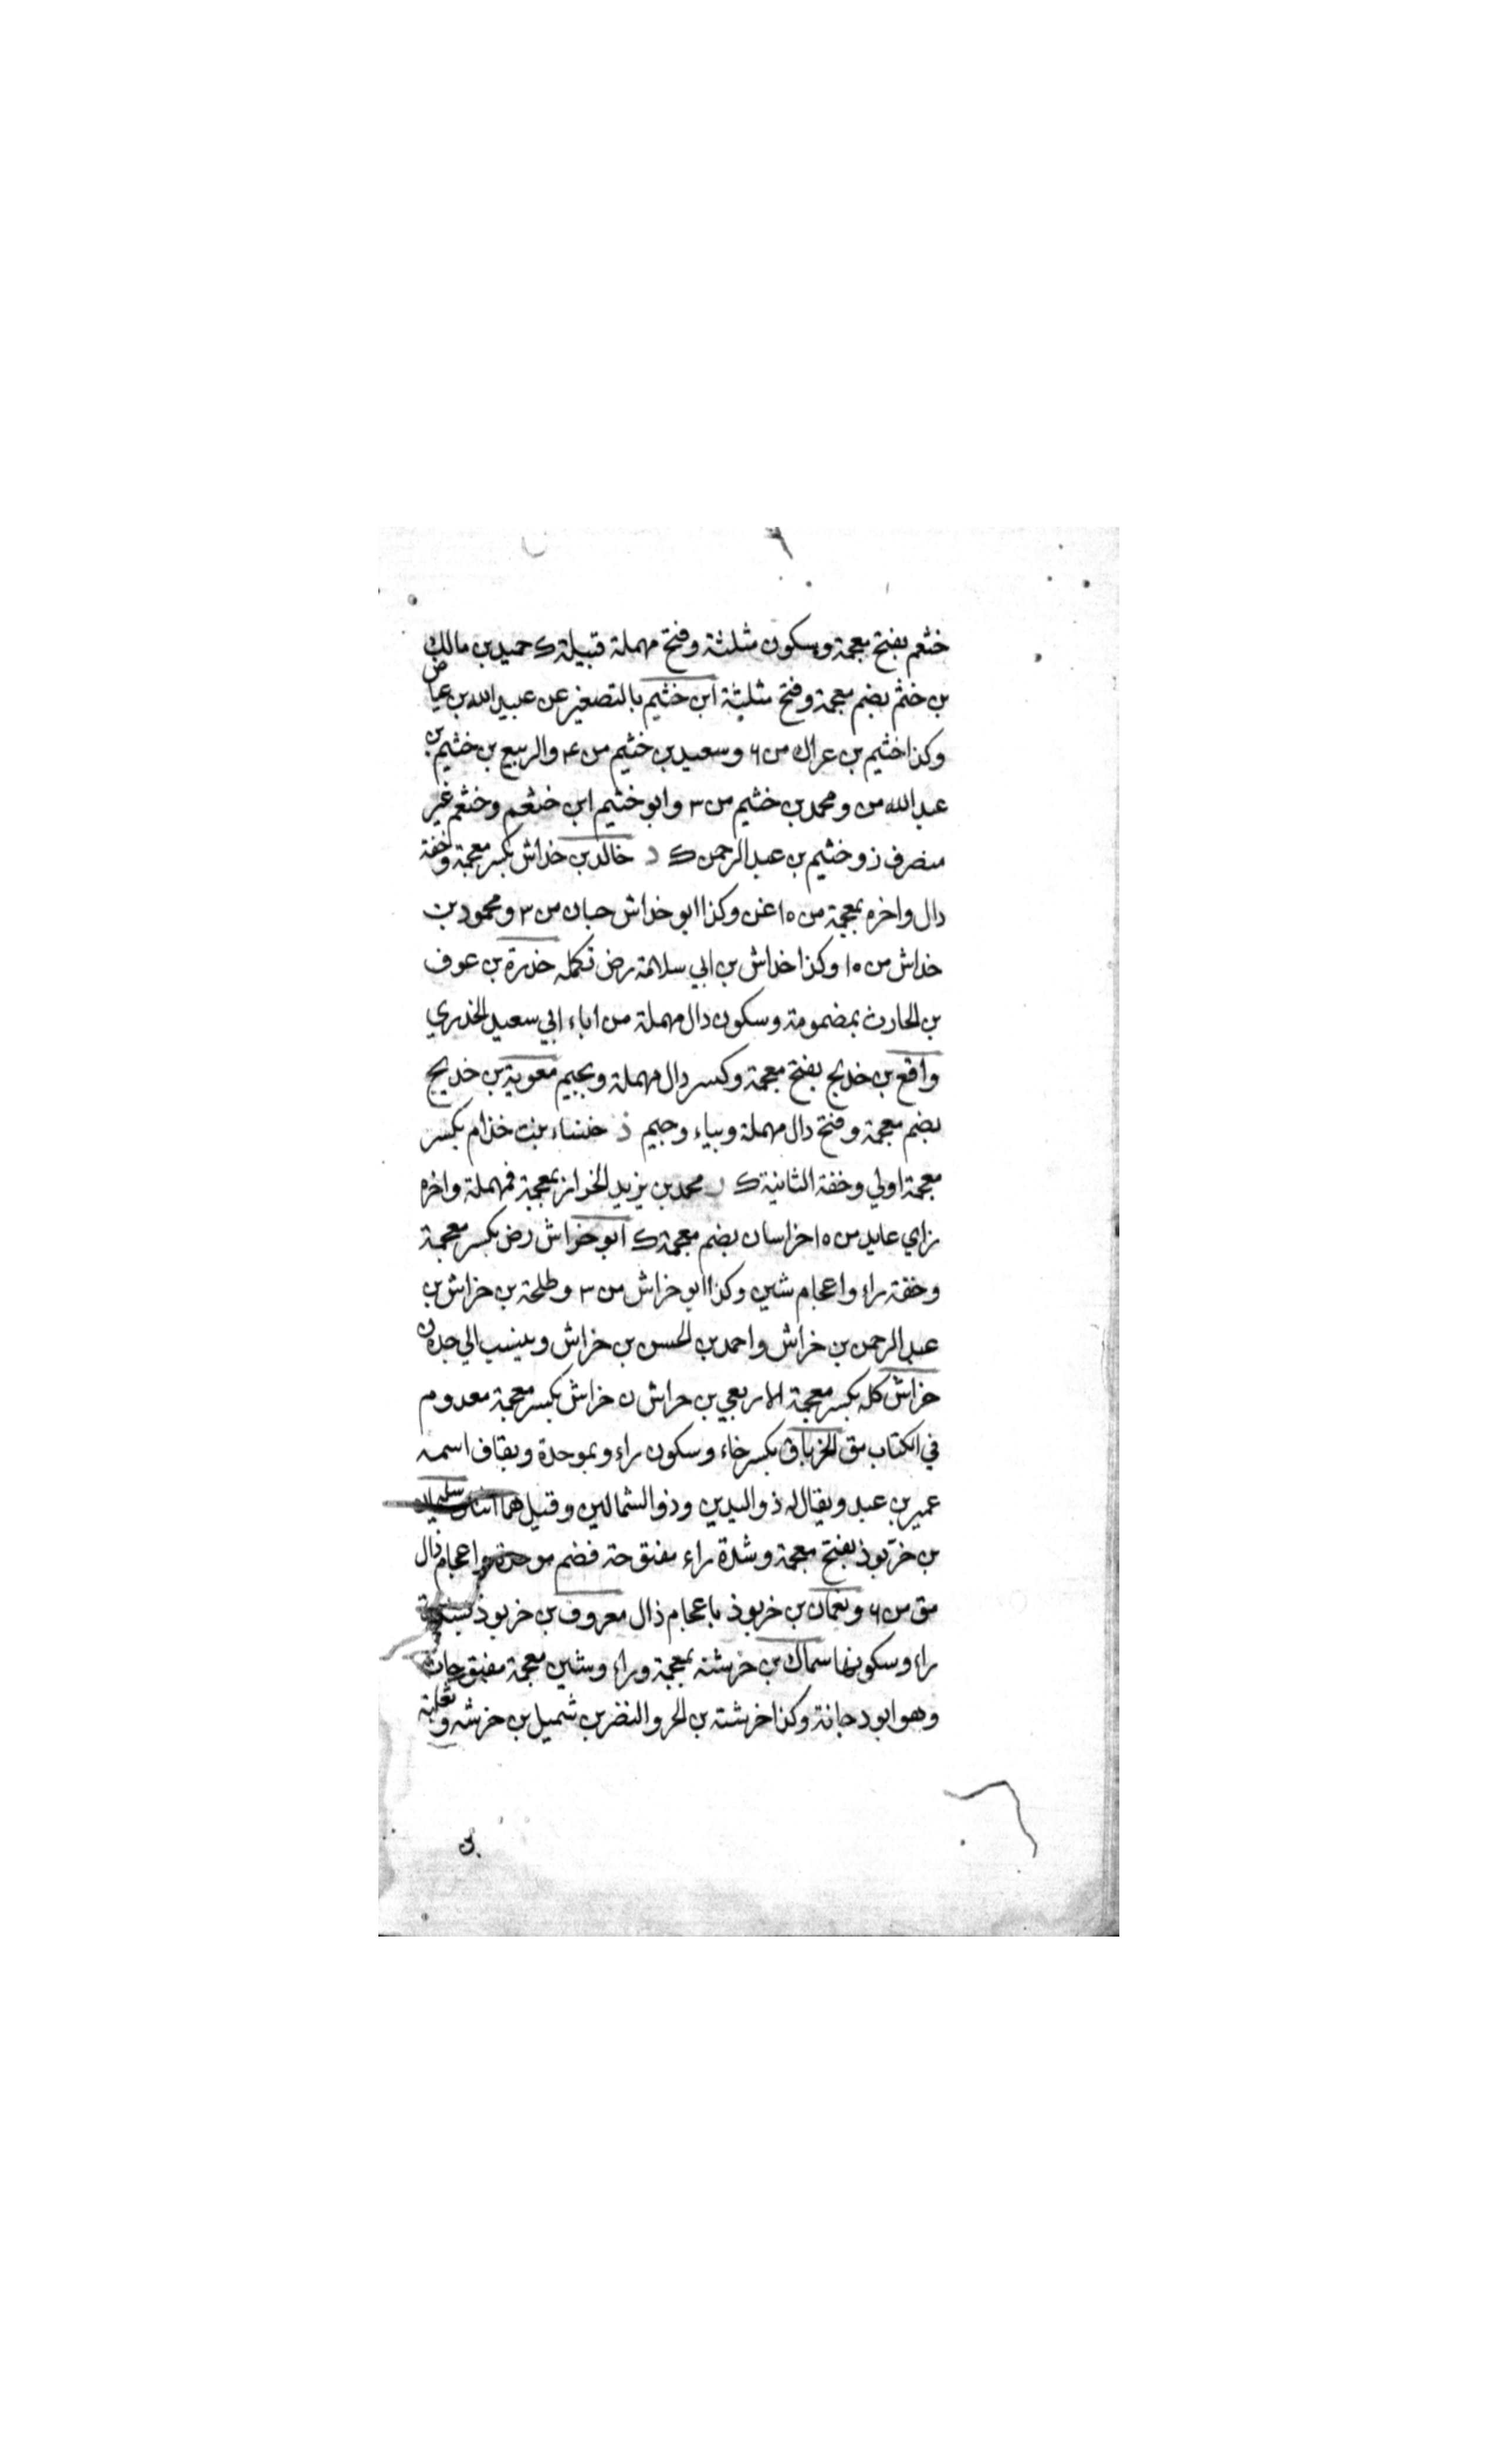 خثعم بفتح معجمة وسكون مثلثة وفتح مهملة قبيلة ك حميد بن مالك
بن خثم بضم معجمة وفتح مثلثة ابن خثيم بالتصغير عن عبيد الله بن عياض
وكذا خثيم بن عراك من ٦ وسعيد بن خثيم من ٤ والربيع بن خثيم بن
عبد الله من ومحمد بن خثيم من ٣ وابو خثيم ابن خثعم وخثعم غير
منصرف ز وخثيم بن عبد الرحمن ك د خالد بن خداش بكسر معجمة وخفة
دال واخره بمعجمة من ١٥ غن وكذا ابو خداش حبان من ٣ ومحمود بن
خداش من ١٥ وكذا خداش بن ابي سلامة رض تكمله خدرة بن عوف
بن الحارث بمضمومة وسكون دال مهملة من اباء ابي سعيد الخدري
وافع بن خديج بفتح معجمة وكسر دال مهملة وبجيم معوية بن خديج
بضم معجمة وفتح دال مهملة وبياء وجيم ذ خنساء بنت خذام بكسر
معجمة اولي وخفة الثانية ك ر محمد بن يزيد الخراز بمعجمة فمهملة واخره
زاي عابد من ١٥ خراسان بضم معجمة ك ابو خراش رض بكسر معجمة
وخفة راء واعجام شين وكذا ابو خراش من ٣ وطلحة بن خراش بن
عبد الرحمن بن خراش واحمد بن الحسن بن خراش وينسب الي جده ن
خراش كله بكسر معجمة الا ربعي بن حراش ن خراش بكسر معجمة معدوم
في الكتاب مق الخرباق بكسر خاء وسكون راء وبموحدة وبقاف اسمه
عمير بن عبد ويقال له ذو اليدين وذو الشمالين وقيل هما اثنان سليمان
بن خربوذ بفتح معجمة وشدة راء مفتوحة فضم موحدة واعجام ذال
مق من ٦ ونعمان بن خربوذ باعجام ذال معروف بن خربوذ
راء وسكونها سماك بن خرشة بمعجمة وراء وشين معجمة مفتوحات
وهو ابو دجانة وكذا خرشة بن الحر والنضر بن شميل بن خرشه وثعلبة